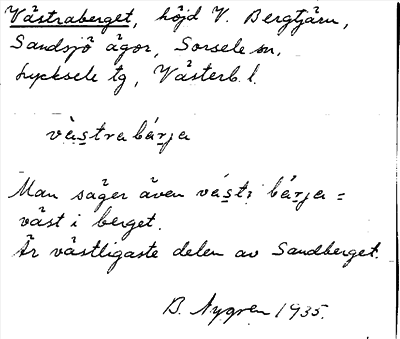 Västraberget, höjd V. Bergtjärn,
Sandsjö ägor, Sorsele sn,
Lycksele tg, Västerb. l.
västra bárja
Man säger även väst i bárja =
väst i berget.
Är västligaste delen av Sandberget.
B. Nygren 1935.